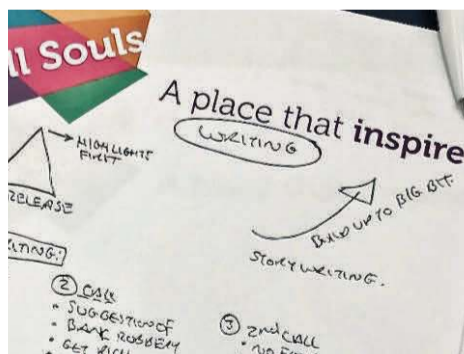 ll Souls
A place that inspire
WRITING
HIGHLIGHTS
FIRST
RELEASE
BUILD UP TO BIG BIT.
STORY WRITING.
ITING:
② CALL
• SUGGESTION OF
• BANK ROBBERY
• GET RICH
③ 2nd CALL